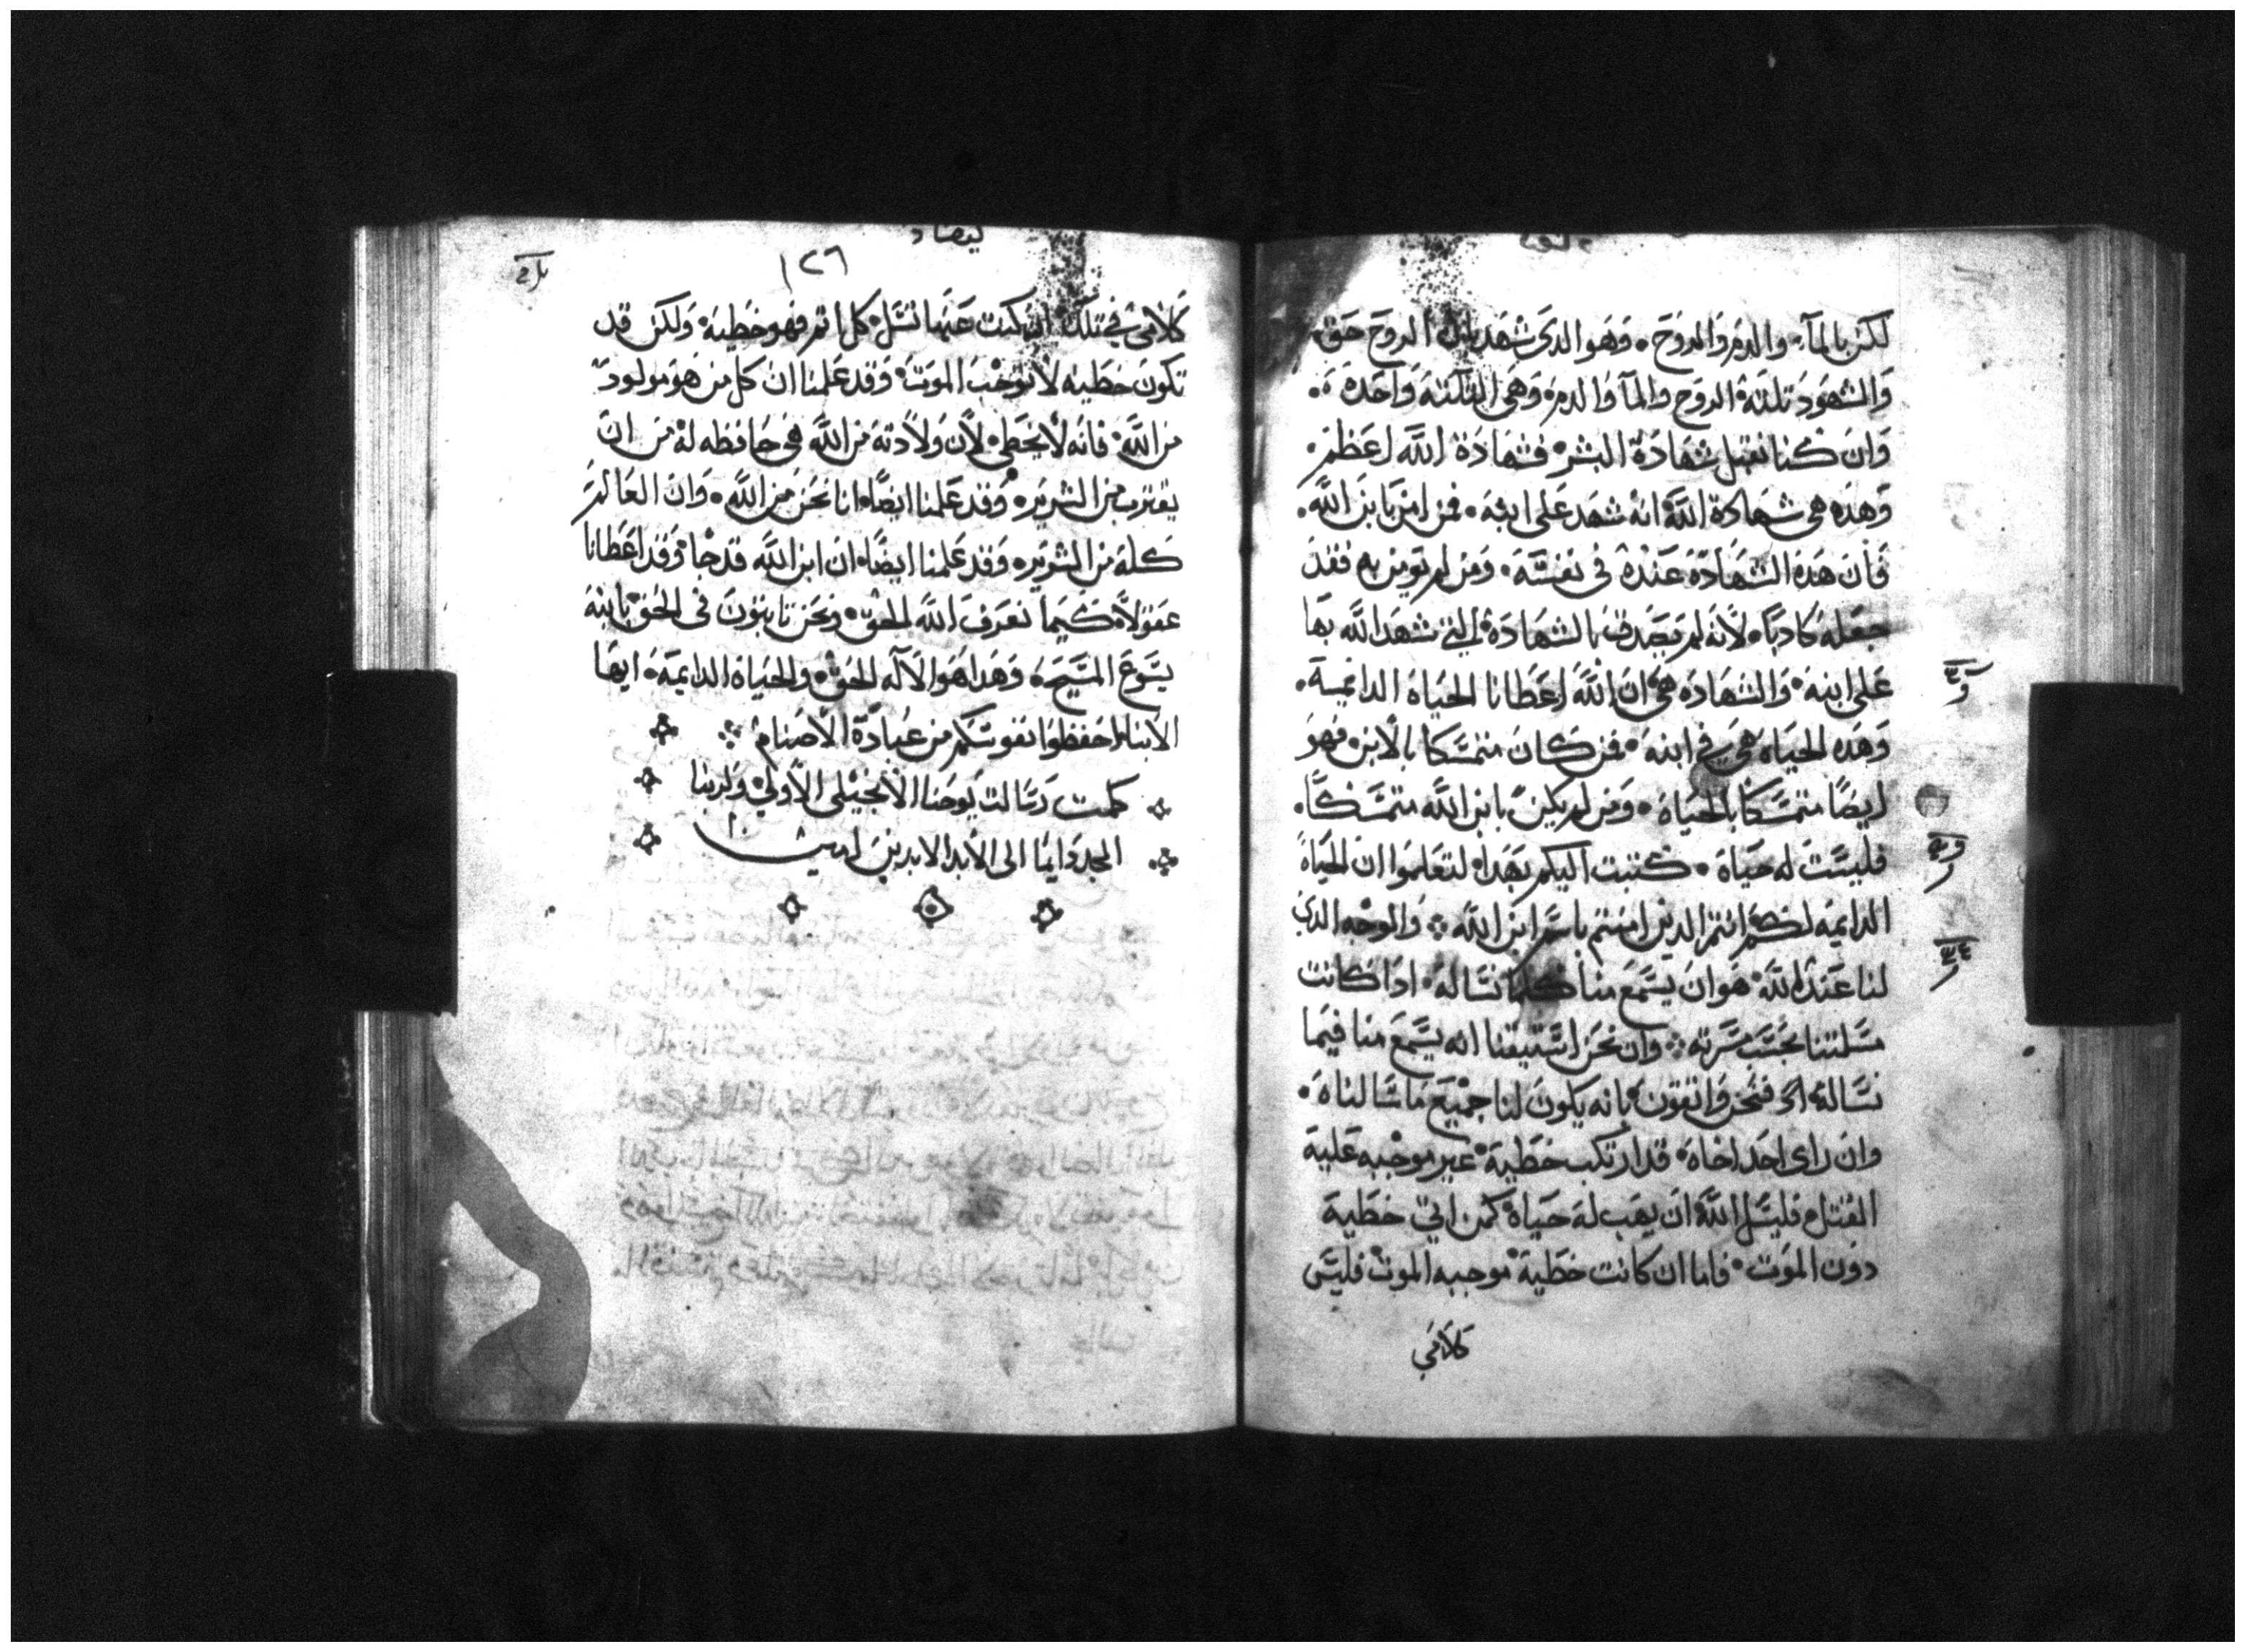 لكن بالمآء والدم والروح • وهو الدى شهد بان الروح حق •
والشهود تلتة الروح والمآ والدم وهى التلتة واحده •
وان كنا نقبل شهادة البشر فشهادة الله اعظم •
وهده هى شهادة الله انه شهد على ابنه • فمن امن بابن الله •
فان هده الشهادة عنده فى نفسه • ومن لم يومن به فقد
جعله كادبا لانه لم يصدق بالشهادة التى شهد الله بها
على ابنه والشهاده هى ان الله اعطانا الحياة الدايمية •
وهده الحياه هى فى ابنه فمن كان متمسكا بالابن فهو
ايضا متمسكا بالحياة • ومن لم يكن بابن الله متمسكا •
فليست له حياة • كتبت اليكم بهدا لتعلموا ان الحياة
الدايمه لكم انتم الدين امنتم باسم ابن الله والوجه الدى
لنا عند الله هو ان يسمع منا كلما نساله ادا كانت
مسلتنا بحسب مسرته وان نحن استيقنا انه يسمع منا فيما
نساله فنحن واتقون بانه يكون لنا جميع ما سالناه •
وان راى احد اخاه قد ارتكب خطية غير موجبه عليه
القتل فليسل الله ان يهب له حياة كمن اتى خطية
دون الموت فاما ان كانت خطية موجبه الموت فليس
كلامى
١٢٦
كلامى فى تلك ان كنت عنها تسل كل اتم فهو خطية ولكن قد
تكون خطيه لا توجب الموت وقد علمنا ان كل من هو مولود
من الله فانه لا يخطى لان ولادته من الله هى حافظه له من ان
يقترب من الشرير وقد علمنا ايضا انا نحن من الله • وان العالم
كله من الشرير وقد علمنا ايضا ان ابن الله قد جا وقد اعطانا
عقولا كيما نعرف الله الحق ونحن تابتون فى الحق بابنه
يسوع المسيح وهدا هو الاله الحق والحياة الدايمة ايها
الابنا احفظوا نفوسكم من عبادة الاصنام
كملت رسالت يوحنا الانجيلى الاولى ولربنا
المجد دايما الى الابد الابدين امين